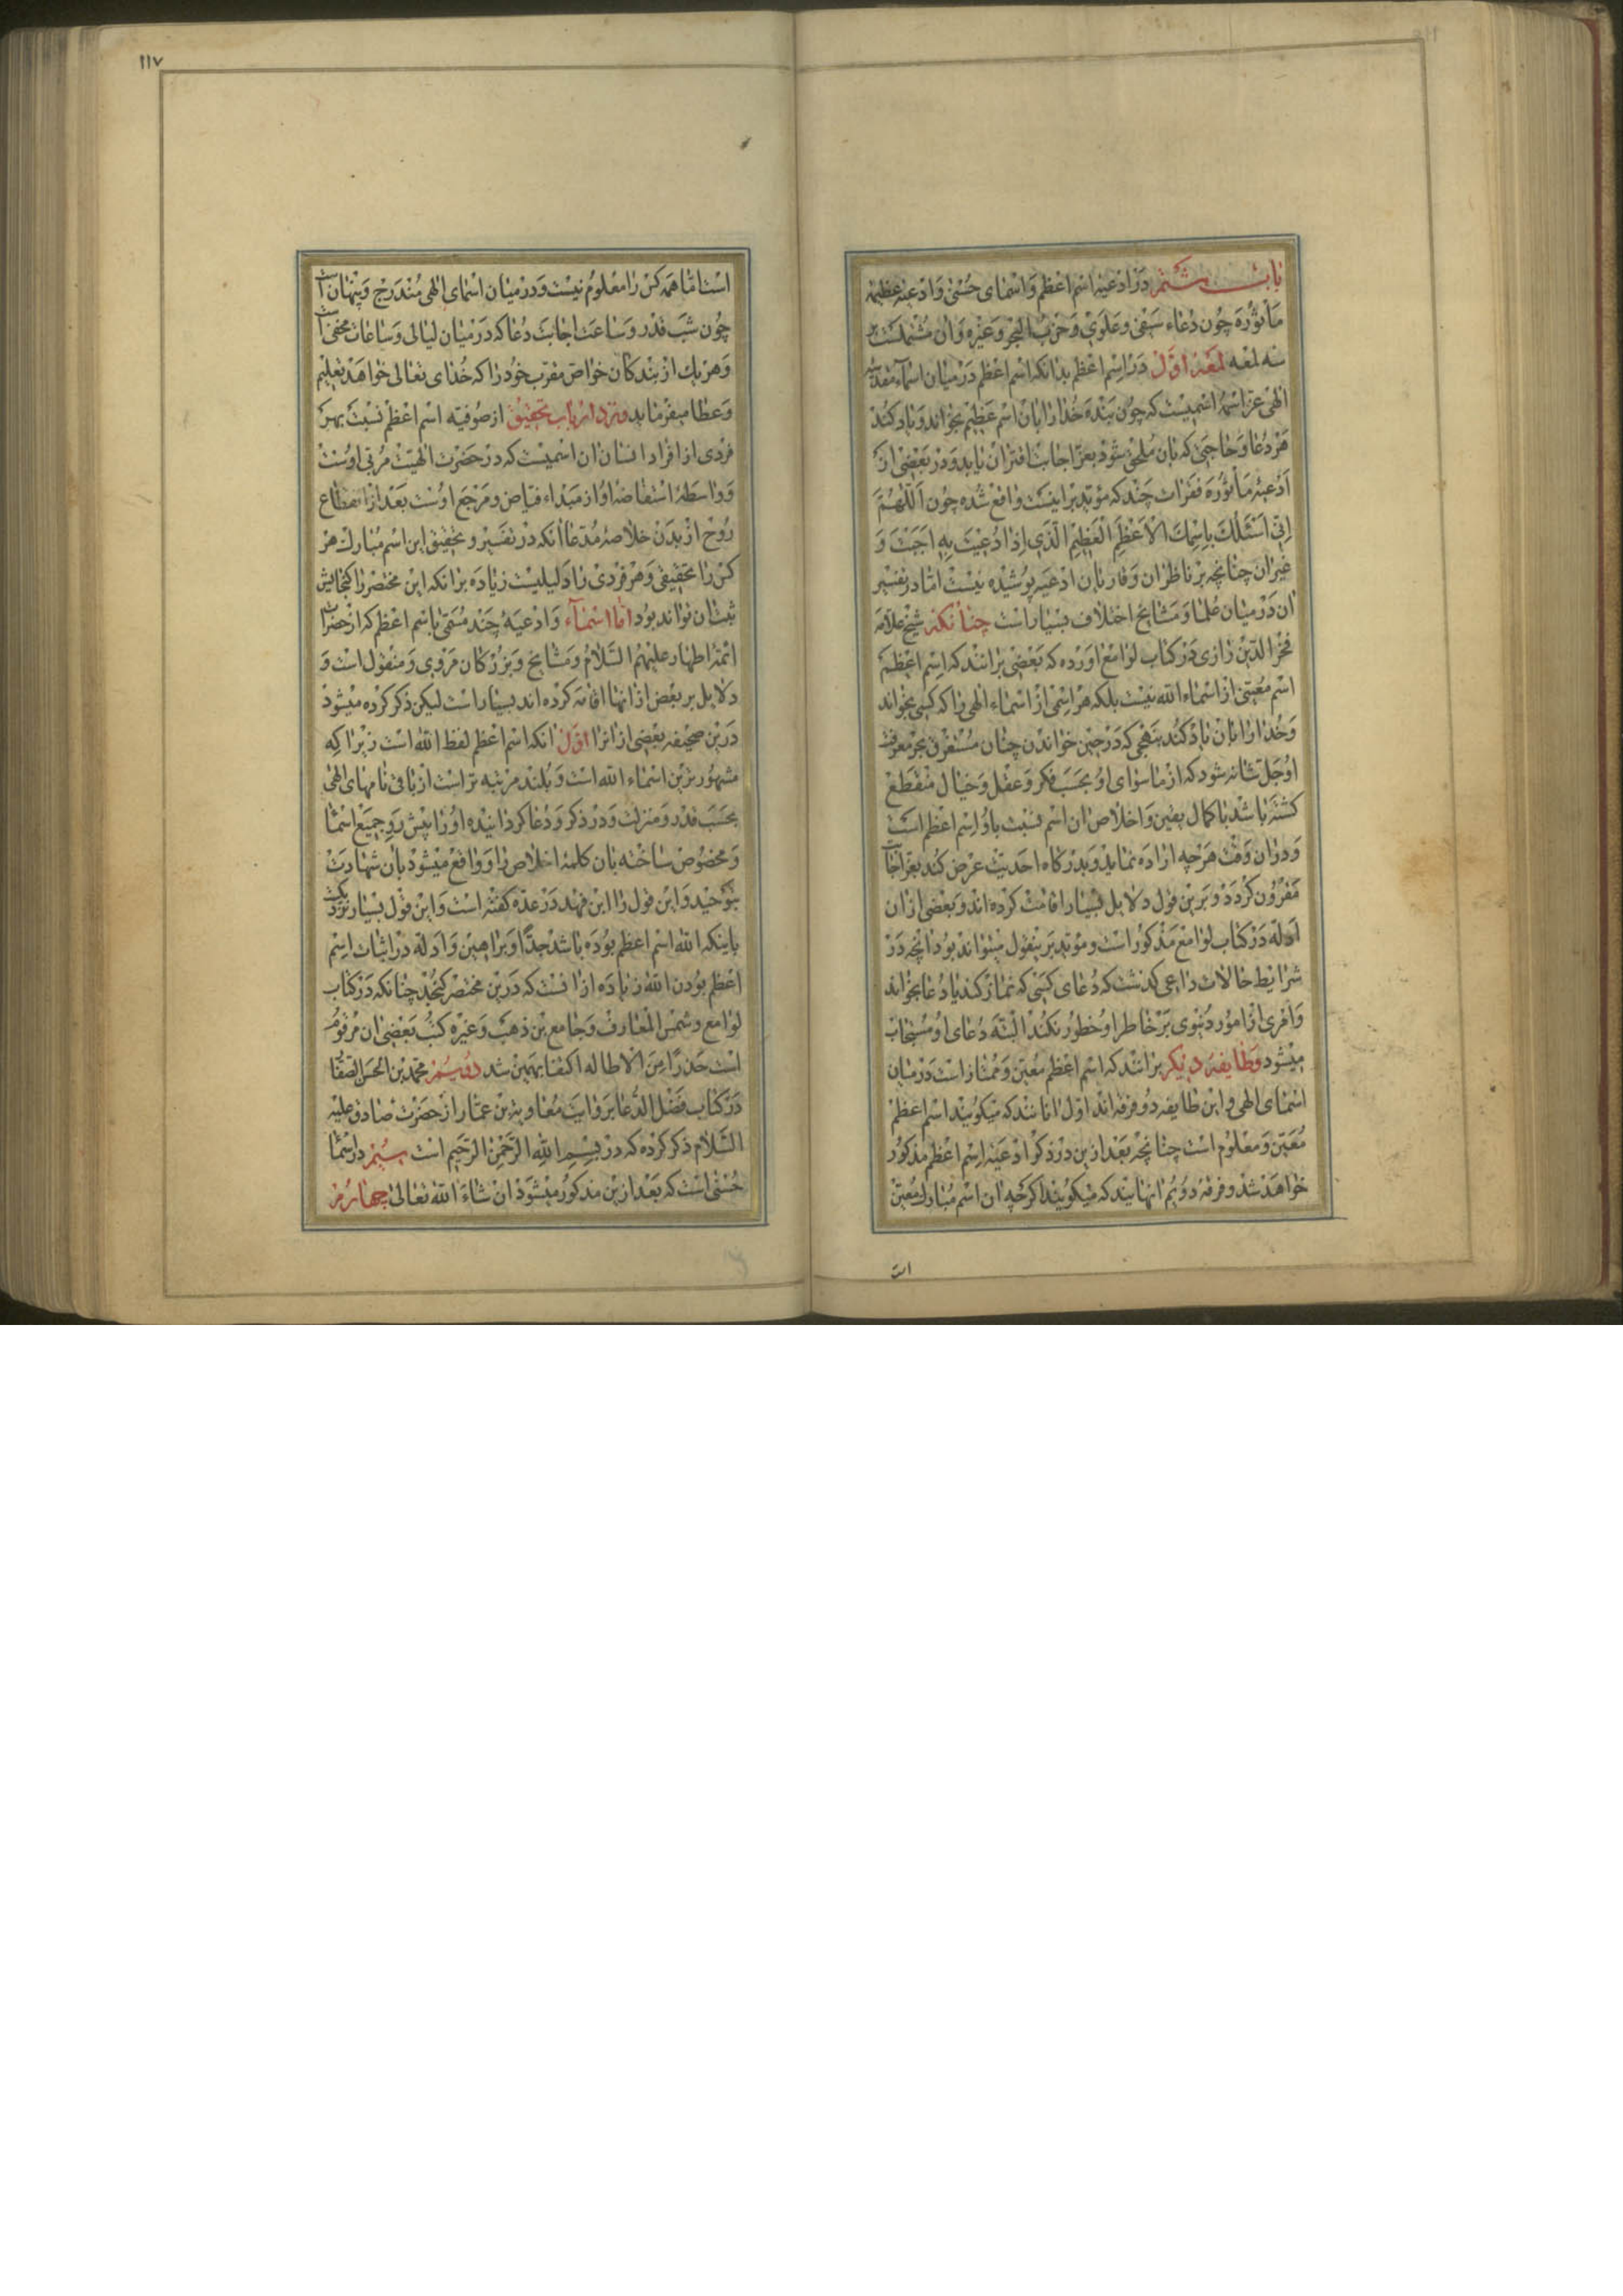 باب ششم در ادعیه اسم اعظم و اسمای حسنی و ادعیه عظیمه
مأثوره چون دعاء سیفی و علوی و حزب البحر و غیره و ان مشتملست بر
سه لمعه لمعه اول در اسم اعظم بدانکه اسم اعظم در میان اسماء مقدسه
الهی عز اسمه اسمیست که چون بنده خدا را بان اسم عظیم بخواند و یاد کند
هر دعا و حاجتی که بان ملحق شود بعز اجابت اقتران یابد و در بعضی از
ادعیه مأثوره فقرات چند که مؤید بر اینست واقع شده چون اللهم
انی اسئلک باسمک الاعظم العظیم الذی اذا دعیت به اجبت و
غیر ان چنانچه بر ناظران و قاریان ادعیه پوشیده نیست اما در تفسیر
ان در میان علما و مشایخ اختلاف بسیار است چنانکه شیخ علامه
فخر الدین رازی در کتاب لوامع اورده که بعضی برانند که اسم اعظم
اسم معینی از اسماء الله نیست بلکه هر اسمی از اسماء الهی را که کسی بخواند
و خدا را بان یاد کند بنهجی که در حین خواندن چنان مستغرق بحر معرفت
او جل شانه شود که از ماسوای او بحسب فکر و عقل و خیال منقطع
کشته باشد با کمال یقین و اخلاص ان اسم نسبت باو اسم اعظم است
و در ان وقت هرچه اراده نماید و بدرکاه احدیت عرض کند بعز اجابت
مقرون کردد و برین قول دلایل بسیار اقامت کرده اند و بعضی از ان
ادله در کتاب لوامع مذکور است و مؤید برینقول میتواند بود انچه در
شرایط حالات داعی کذشت که دعای کسی که نماز کند یا دعا بخواند
و امری از امور دنیوی بر خاطر او خطور نکند البته دعای او مستجاب
میشود و طایفه دیکر برانند که اسم اعظم معین و ممتاز است در میان
اسمای الهی و این طایفه دو فرقه اند اول انانند که میکویند اسم اعظم
معین و معلوم است چنانچه بعد ازین در ذکر ادعیه اسم اعظم مذکور
خواهد شد و فرقه دویم انهایند که میکویند اکرچه ان اسم مبارک معین
است
۱۱۷
است اما همه کس را معلوم نیست و در میان اسمای الهی مندرج و پنهان است
چون شب قدر و ساعت اجابت دعا که در میان لیالی و ساعات مخفی است
و هر یک از بندکان خواص مقرب خود را که خدای تعالی خواهد تعلیم
و عطا میفرماید و نزد ارباب تحقیق از صوفیه اسم اعظم نسبت بهر
فردی از افراد انسان ان اسمیست که در حضرت الهیت مربی اوست
و واسطه استفاضه او از مبداء فیاض و مرجع اوست بعد از انقطاع
روح از بدن خلاصه مدعا انکه در تفسیر و تحقیق این اسم مبارک هر
کس را تحقیقی و هر فردی را دلیلیست زیاده بر انکه این مختصر را کنجایش
ثبت ان تواند بود اما اسماء و ادعیه چند مسمی باسم اعظم که از حضرات
ائمه اطهار علیهم السلام و مشایخ و بزرکان مروی و منقول است و
دلایل بر بعض از انها اقامه کرده اند بسیار است لیکن ذکر کرده میشود
درین صحیفه بعضی از انرا اول انکه اسم اعظم لفظ الله است زیرا که
مشهورترین اسماء الله است و بلند مرتبه تر است از باقی نامهای الهی
بحسب قدر و منزلت و در ذکر و دعا کردانیده او را پیش رو جمیع اسما
و مخصوص ساخته بان کلمه اخلاص را و واقع میشود بان شهادت
بتوحید و این قول را ابن فهد در عده کفته است و این قول بسیار نزدیکست
باینکه الله اسم اعظم بوده باشد جدا و براهین و ادله در اثبات اسم
اعظم بودن الله زیاده از انست که درین مختصر کنجد چنانکه در کتاب
لوامع و شمس المعارف و جامع بن ذهب و غیره کتب بعضی ان مرقوم
است حذرا من الاطاله اکتفا بهمین شد دویم محمد بن الحسن الصفا
در کتاب فضل الدعا بروایت معاویة بن عمار از حضرت صادق علیه
السلام ذکر کرده که در بسم الله الرحمن الرحیم است سیم در اسما
حسنی است که بعد ازین مذکور میشود ان شاء الله تعالی چهارم